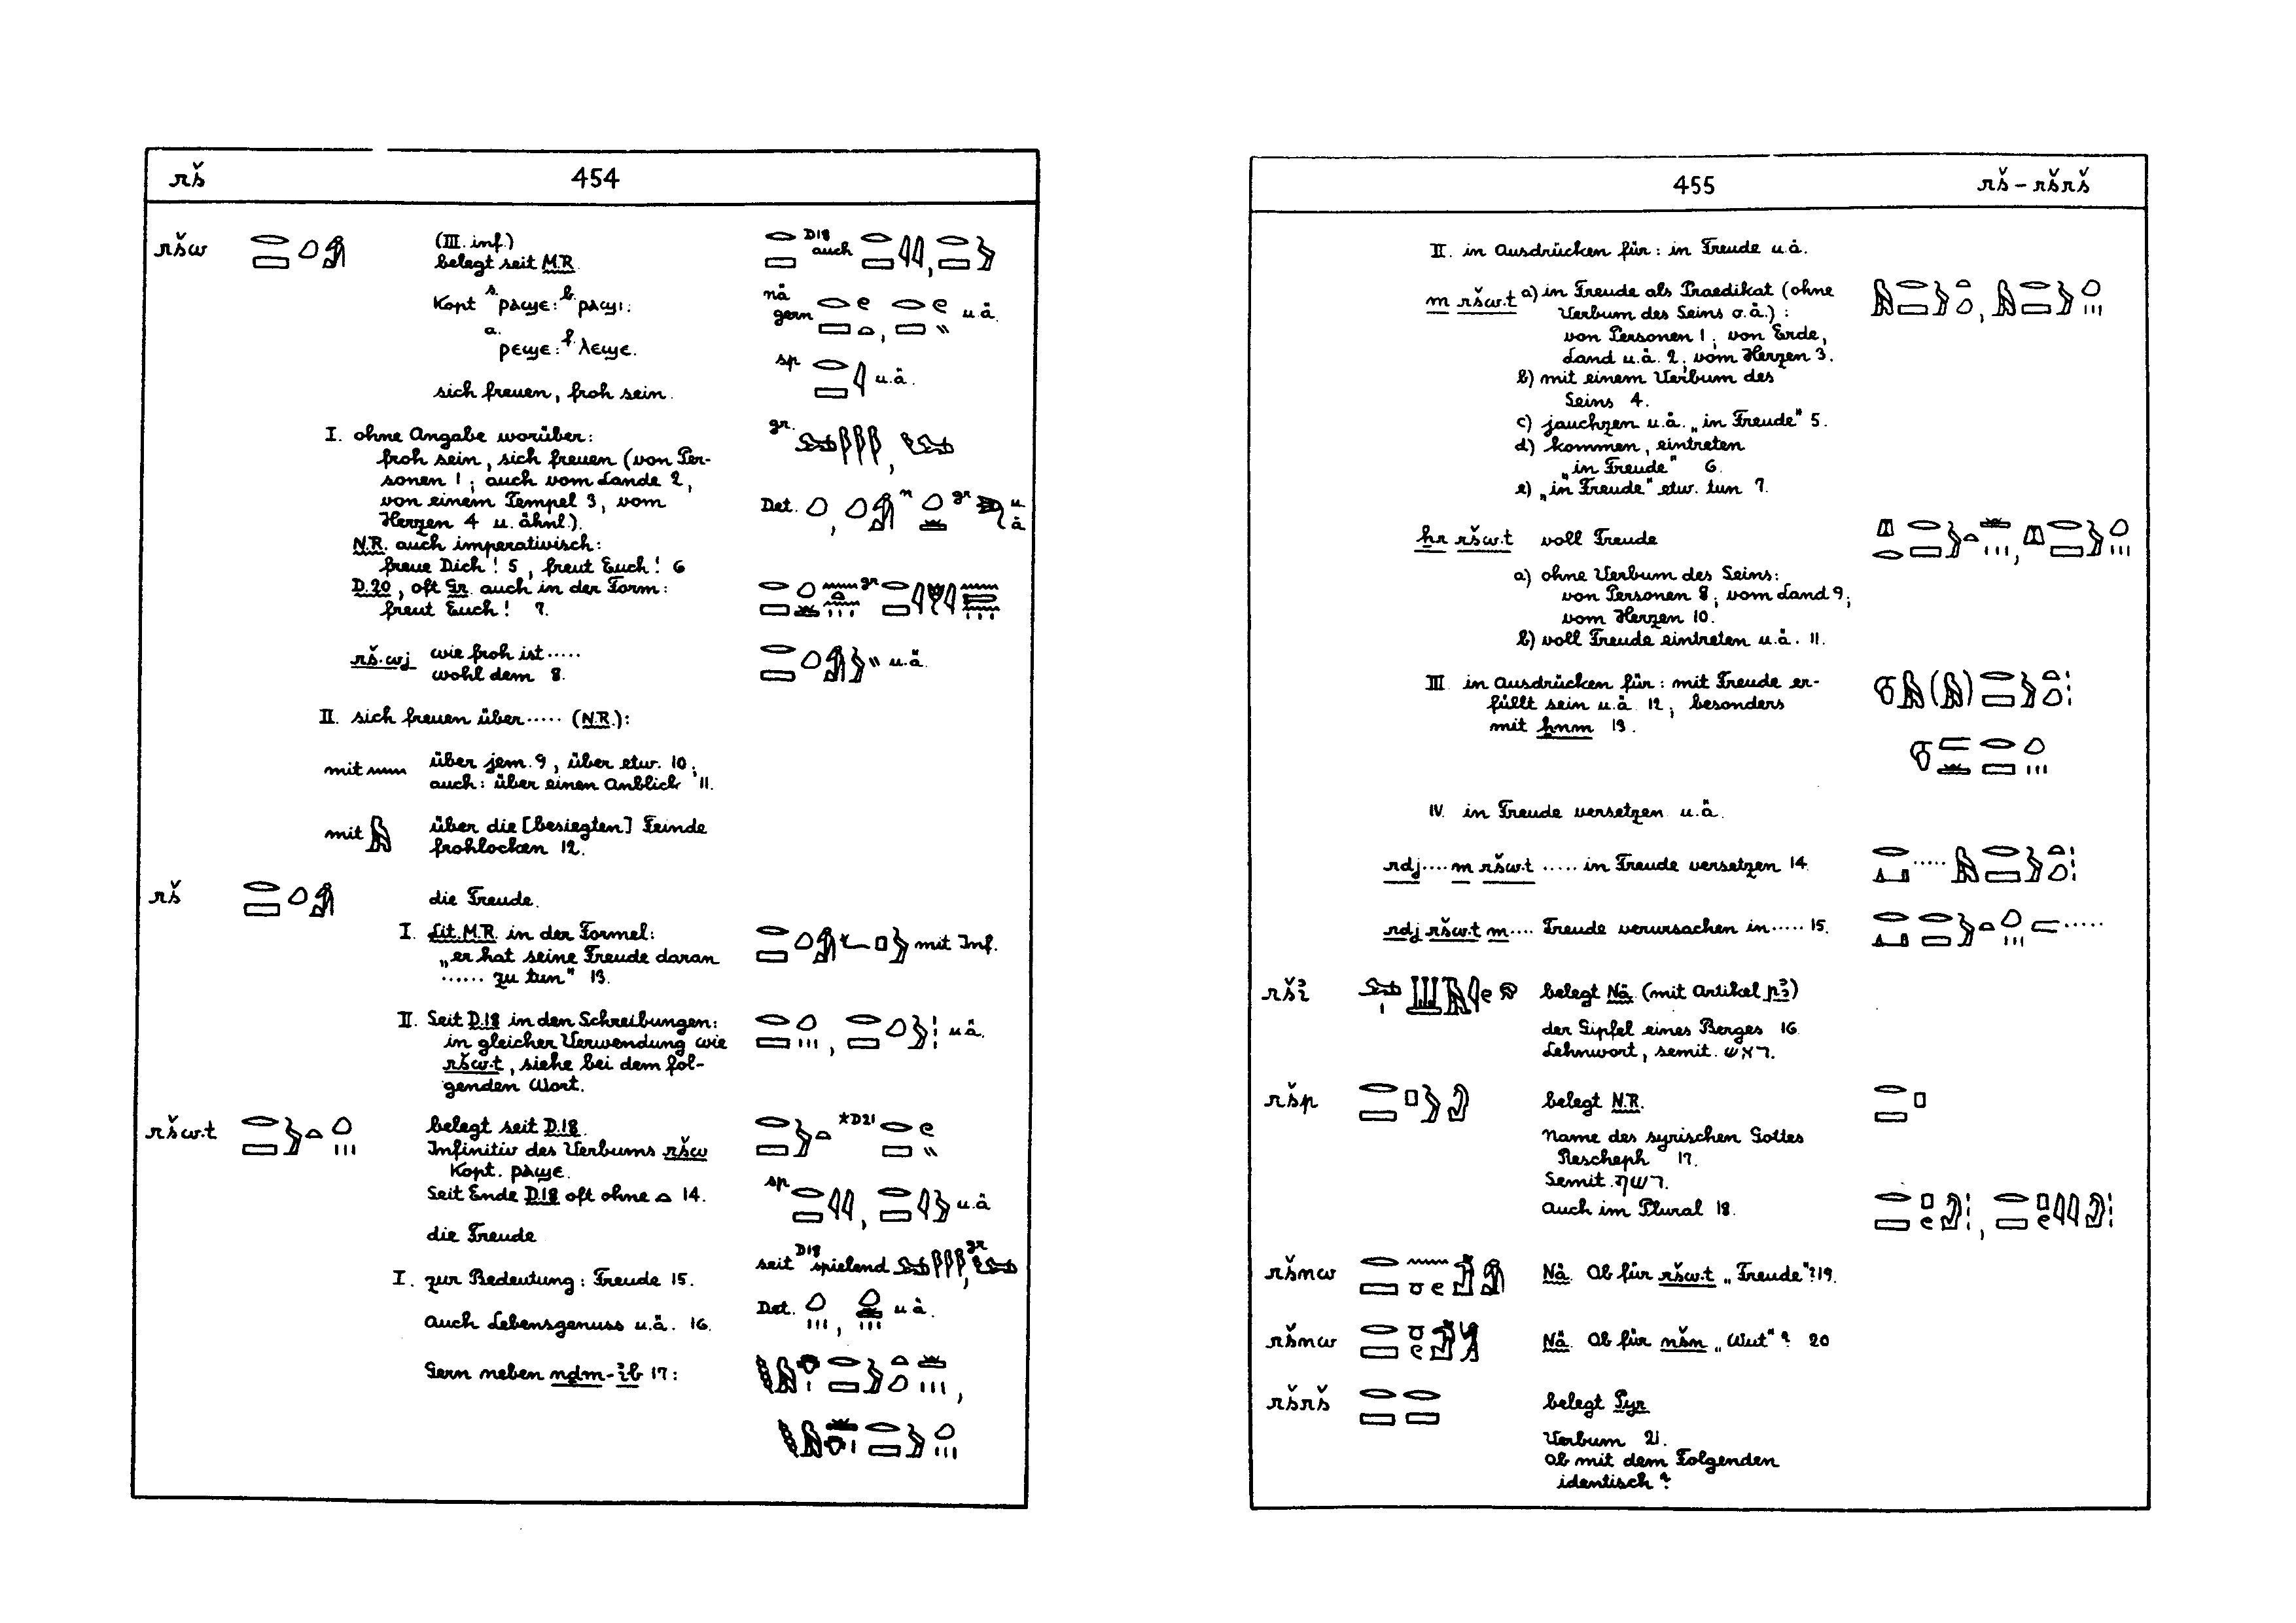 rš 454
ršw (III. inf.)
belegt seit M.R.
Kopt. s. ⲣⲁϣⲉ: b. ⲣⲁϣⲓ:
a. ⲣⲉϣⲉ: f. ⲗⲉϣⲉ.
sich freuen, froh sein.
D18 auch
nä gern u.ä.
sp u.ä.
gr.
I. ohne Angabe worüber:
froh sein, sich freuen (von Per-
sonen 1; auch vom Lande 2,
von einem Tempel 3, vom
Herzen 4 u. ähnl.).
Det. n gr u ä
N.R. auch imperativisch:
freue Dich! 5, freut Euch! 6
D.20, oft Gr. auch in der Form:
freut Euch! 7.
gr
rš.wj wie froh ist.....
wohl dem 8.
u.ä.
II. sich freuen über..... (N.R.):
mit über jem. 9, über etw. 10;
auch: über einen Anblick 11.
mit über die [besiegten] Feinde
frohlocken 12.
rš die Freude.
I. Lit. M.R. in der Formel:
„er hat seine Freude daran
...... zu tun" 13.
mit Inf.
II. Seit D.18 in den Schreibungen:
in gleicher Verwendung wie
ršw.t, siehe bei dem fol-
genden Wort.
u.ä.
ršw.t belegt seit D.18.
Infinitiv des Verbums ršw
Kopt. ⲣⲁϣⲉ.
Seit Ende D.18 oft ohne 14.
*D21
sp u.ä
die Freude
seit D18 spielend gr
I. zur Bedeutung: Freude 15.
Det. u.ä.
Auch Lebensgenuss u.ä. 16.
Gern neben nḏm-ỉb 17:
455 rš – ršrš
II. in Ausdrücken für: in Freude u.ä.
m ršw.t a) in Freude als Praedikat (ohne
Verbum des Seins o.ä.):
von Personen 1; von Erde,
Land u.ä. 2; vom Herzen 3.
b) mit einem Verbum des
Seins 4.
c) jauchzen u.ä. „in Freude" 5.
d) kommen, eintreten
„in Freude" 6.
e) „in Freude" etw. tun 7.
ẖr ršw.t voll Freude
a) ohne Verbum des Seins:
von Personen 8; vom Land 9;
vom Herzen 10.
b) voll Freude eintreten u.ä. 11.
III. in Ausdrücken für: mit Freude er-
füllt sein u.ä. 12; besonders
mit ẖnm 13.
IV. in Freude versetzen u.ä.
rdj.... m ršw.t ..... in Freude versetzen 14.
rdj ršw.t m.... Freude verursachen in..... 15.
ršỉ belegt Nä. (mit Artikel pꜣ)
der Gipfel eines Berges 16.
Lehnwort, semit. ראש.
ršp belegt N.R.
Name des syrischen Gottes
Rescheph 17.
Semit. רשף.
Auch im Plural 18.
ršnw Nä. Ob für ršw.t „Freude"? 19.
ršnw Nä. Ob für nšn „Wut"? 20
ršrš belegt Pyr
Verbum 21.
Ob mit dem Folgenden
identisch?